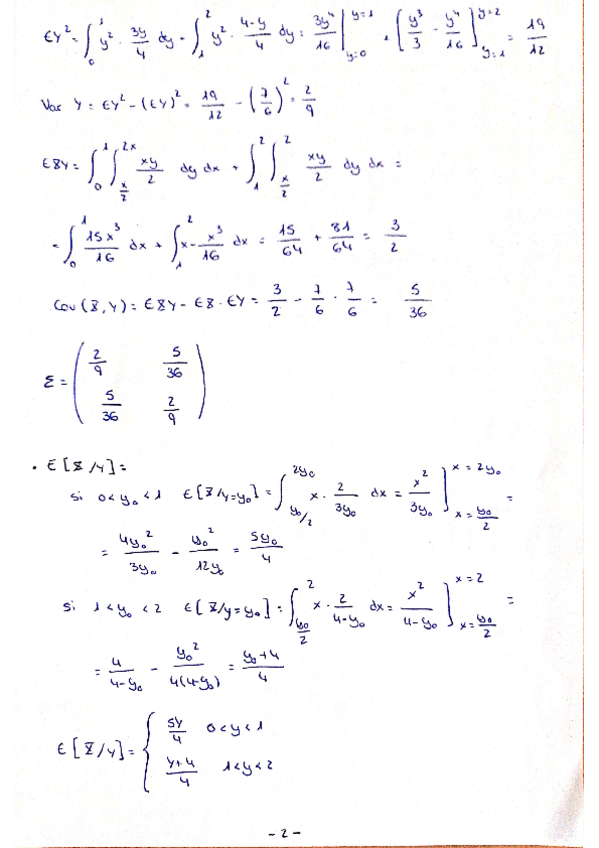 EY² = ∫₀¹ y² · 3y/4 dy + ∫₁² y² · (4-y)/4 dy = 3y⁴/16 |_{y=0}^{y=1} + [y³/3 - y⁴/16]_{y=1}^{y=2} = 19/12
Var Y = EY² - (EY)² = 19/12 - (7/6)² = 2/9
EXY = ∫₀¹ ∫_{x/2}^{2x} xy/2 dy dx + ∫₁² ∫_{x/2}^{2} xy/2 dy dx =
= ∫₀¹ 15x³/16 dx + ∫₁² x - x³/16 dx = 15/64 + 81/64 = 3/2
Cov(X,Y) = EXY - EX · EY = 3/2 - 7/6 · 7/6 = 5/36
Σ = ( 2/9 5/36
5/36 2/9 )
· E[X/Y] =
si 0<y₀<1 E[X/Y=y₀] = ∫_{y₀/2}^{2y₀} x · 2/3y₀ dx = x²/3y₀ ]_{x=y₀/2}^{x=2y₀} =
= 4y₀²/3y₀ - y₀²/12y₀ = 5y₀/4
si 1<y₀<2 E[X/y=y₀] = ∫_{y₀/2}^{2} x · 2/(4-y₀) dx = x²/(4-y₀) ]_{x=y₀/2}^{x=2} =
= 4/(4-y₀) - y₀²/4(4-y₀) = (y₀+4)/4
E[X/Y] = { 5Y/4 0<y<1
(Y+4)/4 1<y<2
- 2 -